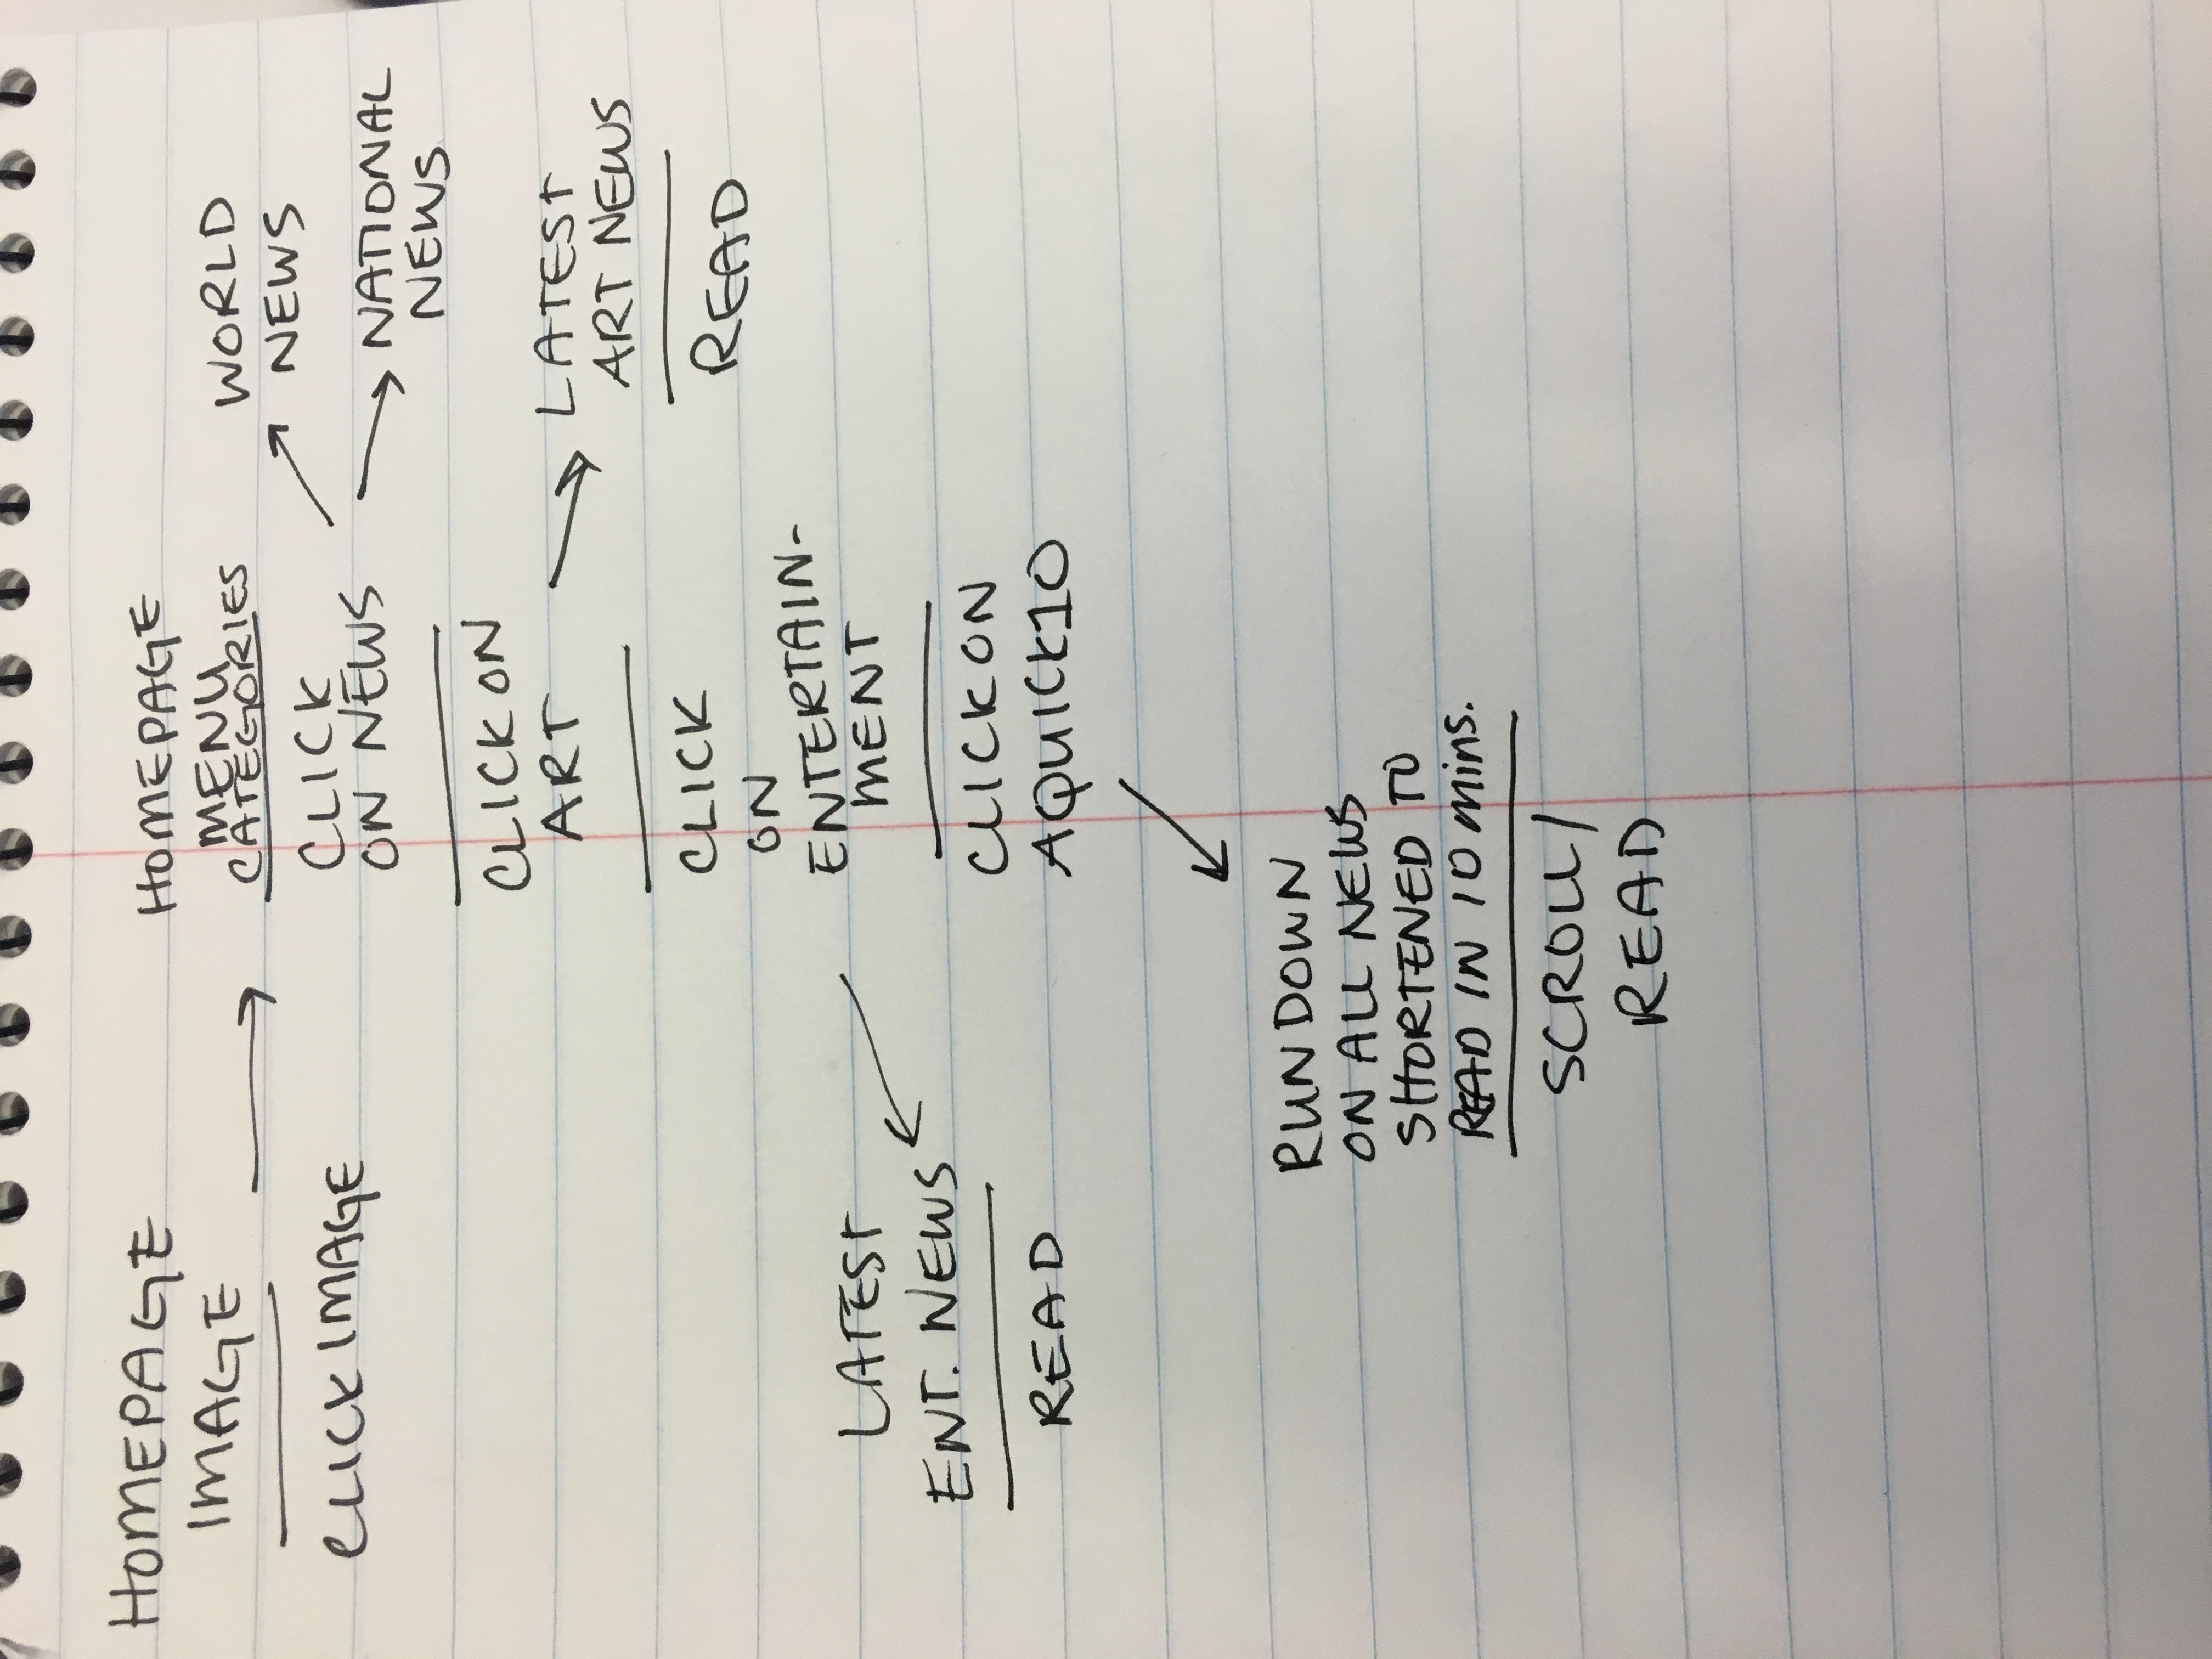 HOMEPAGE
IMAGE
CLICK IMAGE
HOMEPAGE
MENU
CATEGORIES
CLICK
ON NEWS
WORLD
NEWS
NATIONAL
NEWS
CLICK ON
ART
LATEST
ART NEWS
READ
CLICK
ON
ENTERTAIN-
MENT
LATEST
ENT. NEWS
READ
CLICK ON
AQUICK10
RUN DOWN
ON ALL NEWS
SHORTENED TO
READ IN 10 mins.
SCROLL/
READ